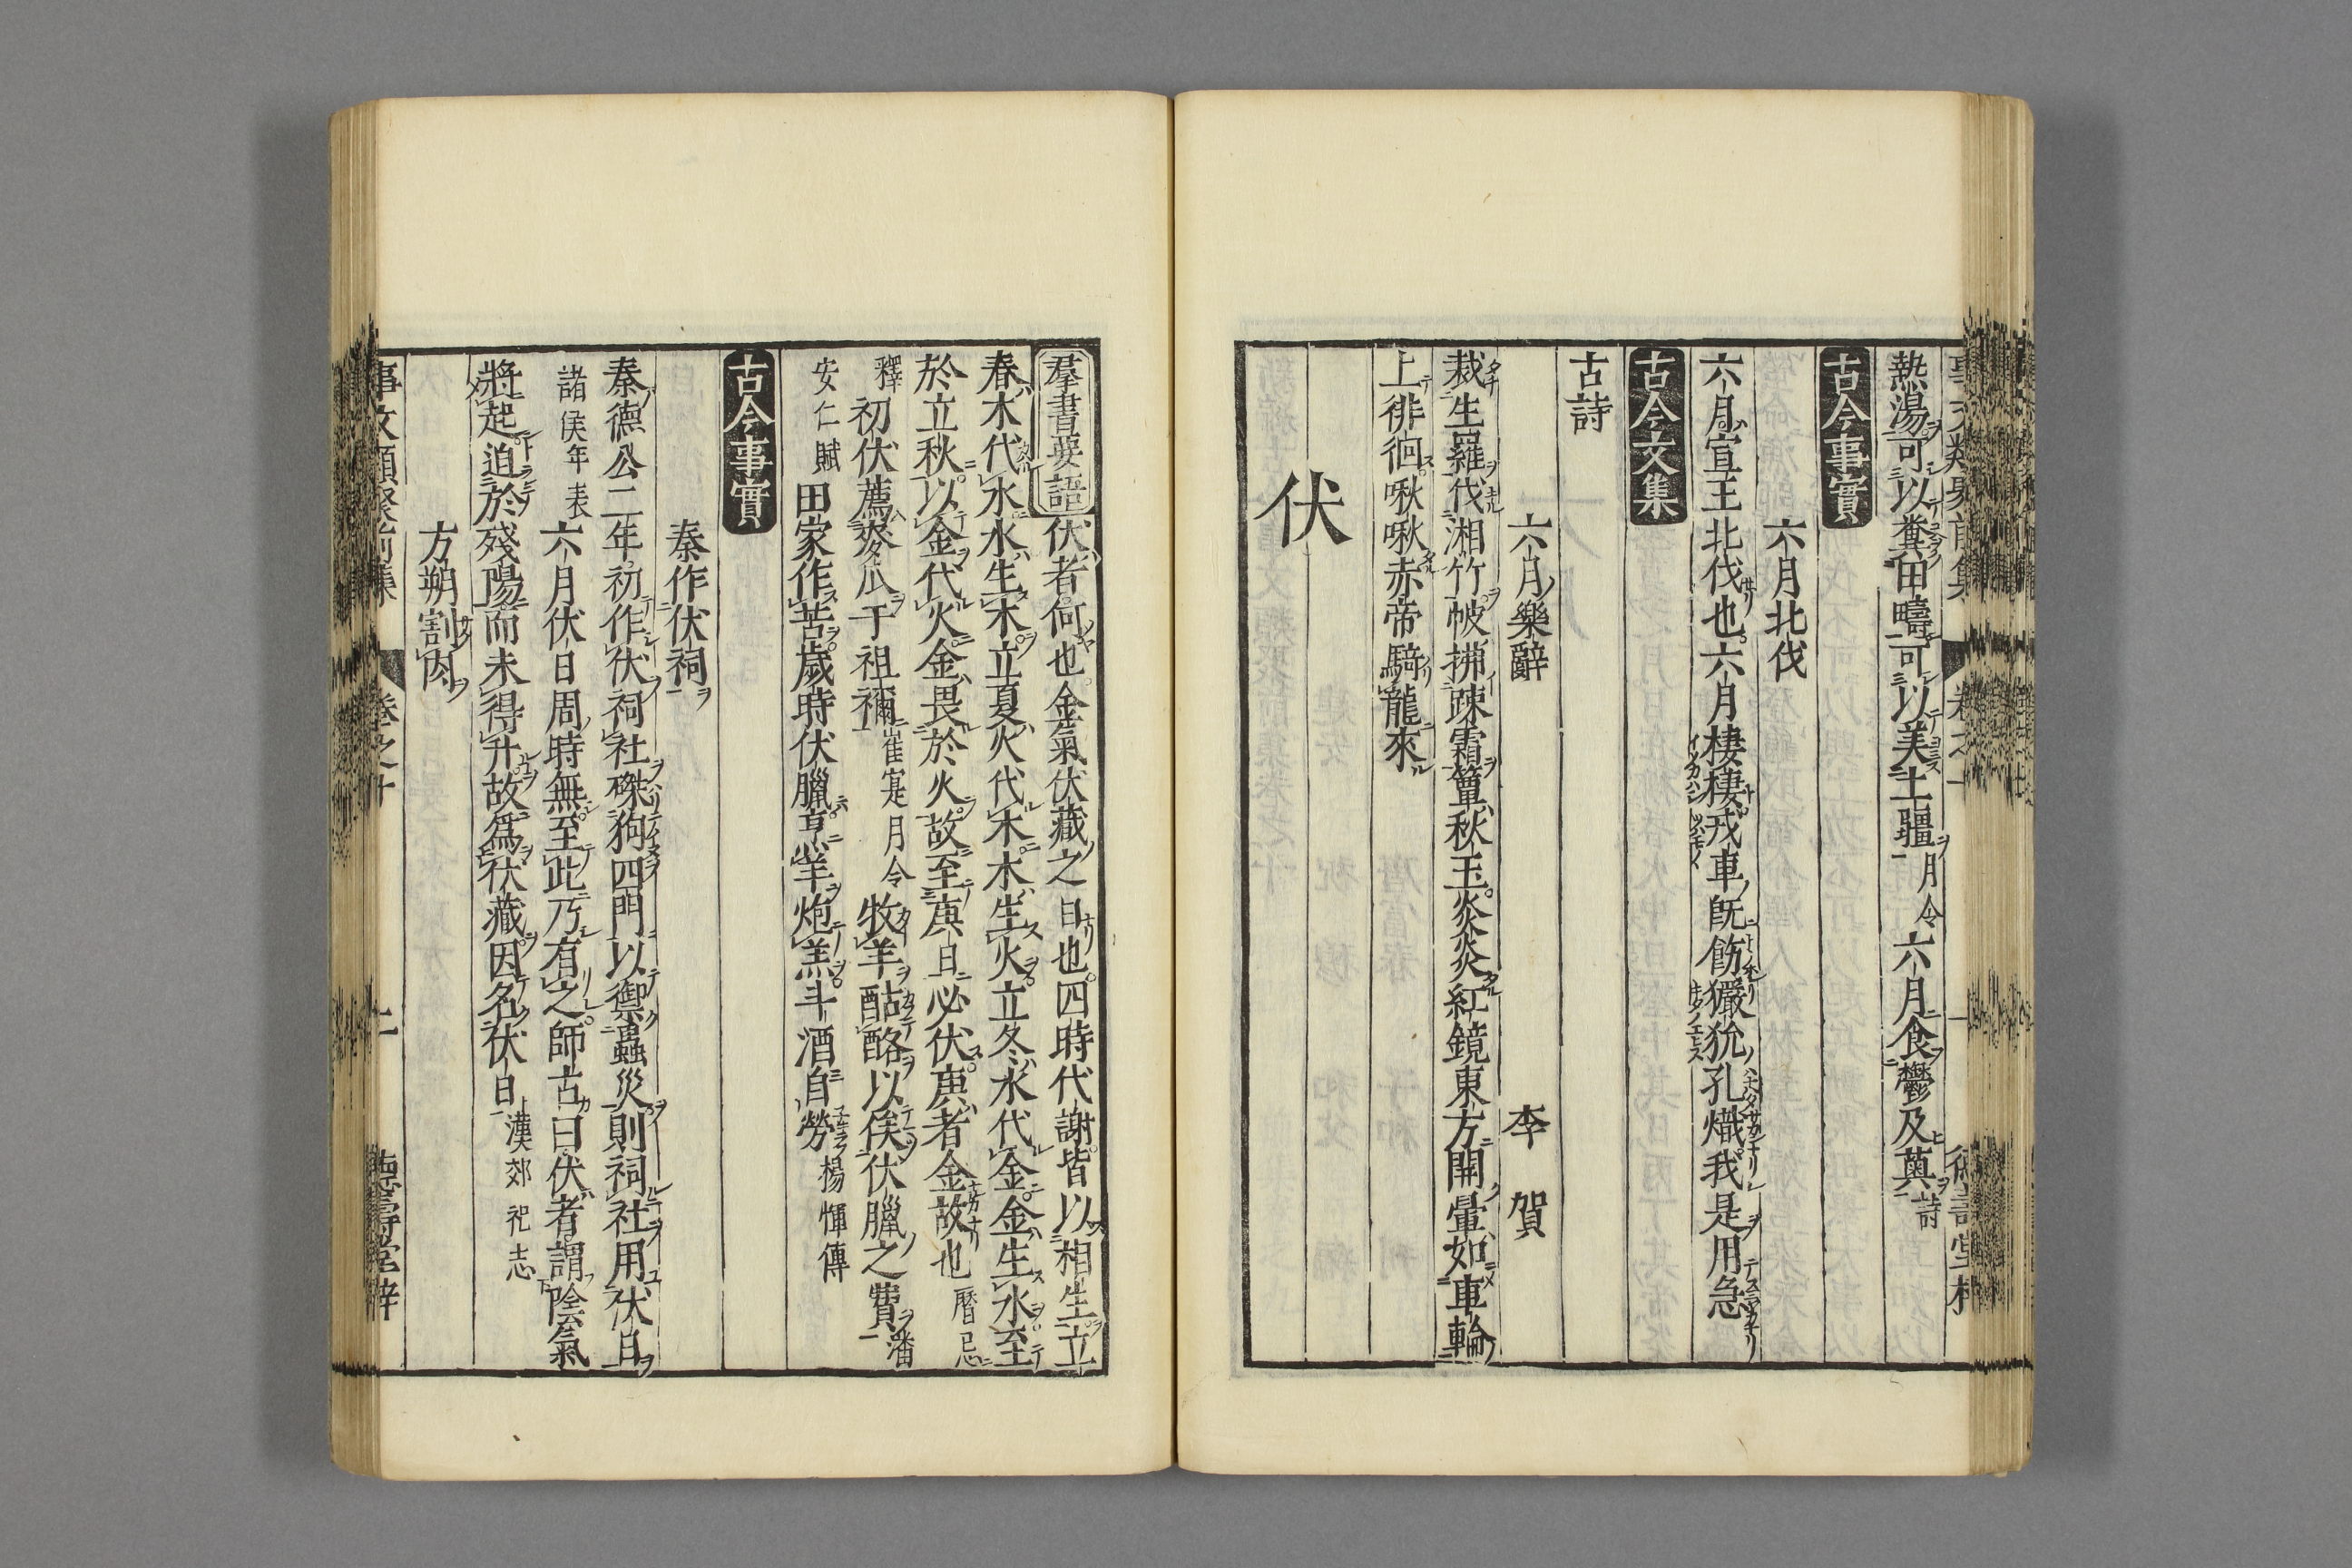 熱湯可以糞田疇可以美土疆月令六月食鬱及薁詩
古今事實
六月北伐
六月宣王北伐也六月棲棲戎車既飭玁狁孔熾我是用急
古今文集
古詩
六月樂辭 李賀
裁生羅伐湘竹帔拂踈霜簟秋玉炎炎紅鏡東方開暈如車輪
上徘徊啾啾赤帝騎龍來
伏
羣書要語伏者何也金氣伏藏之日也四時代謝皆以相生立
春木代水水生木立夏火代木木生火立冬水代金金生水至
於立秋以金代火金畏於火故至庚日必伏庚者金故也曆忌
釋初伏薦麥瓜于祖禰崔寔月令牧羊酤酪以俟伏臘之費潘
安仁賦田家作苦歲時伏臘烹羊炮羔斗酒自勞楊惲傳
古今事實
秦作伏祠
秦德公二年初作伏祠社磔狗四門以禦蠱災則祠社用伏日
諸侯年表六月伏日周時無至此乃有之師古曰伏者謂陰氣
將起迫於殘陽而未得升故爲伏藏因名伏日漢郊祀志
方朔割肉